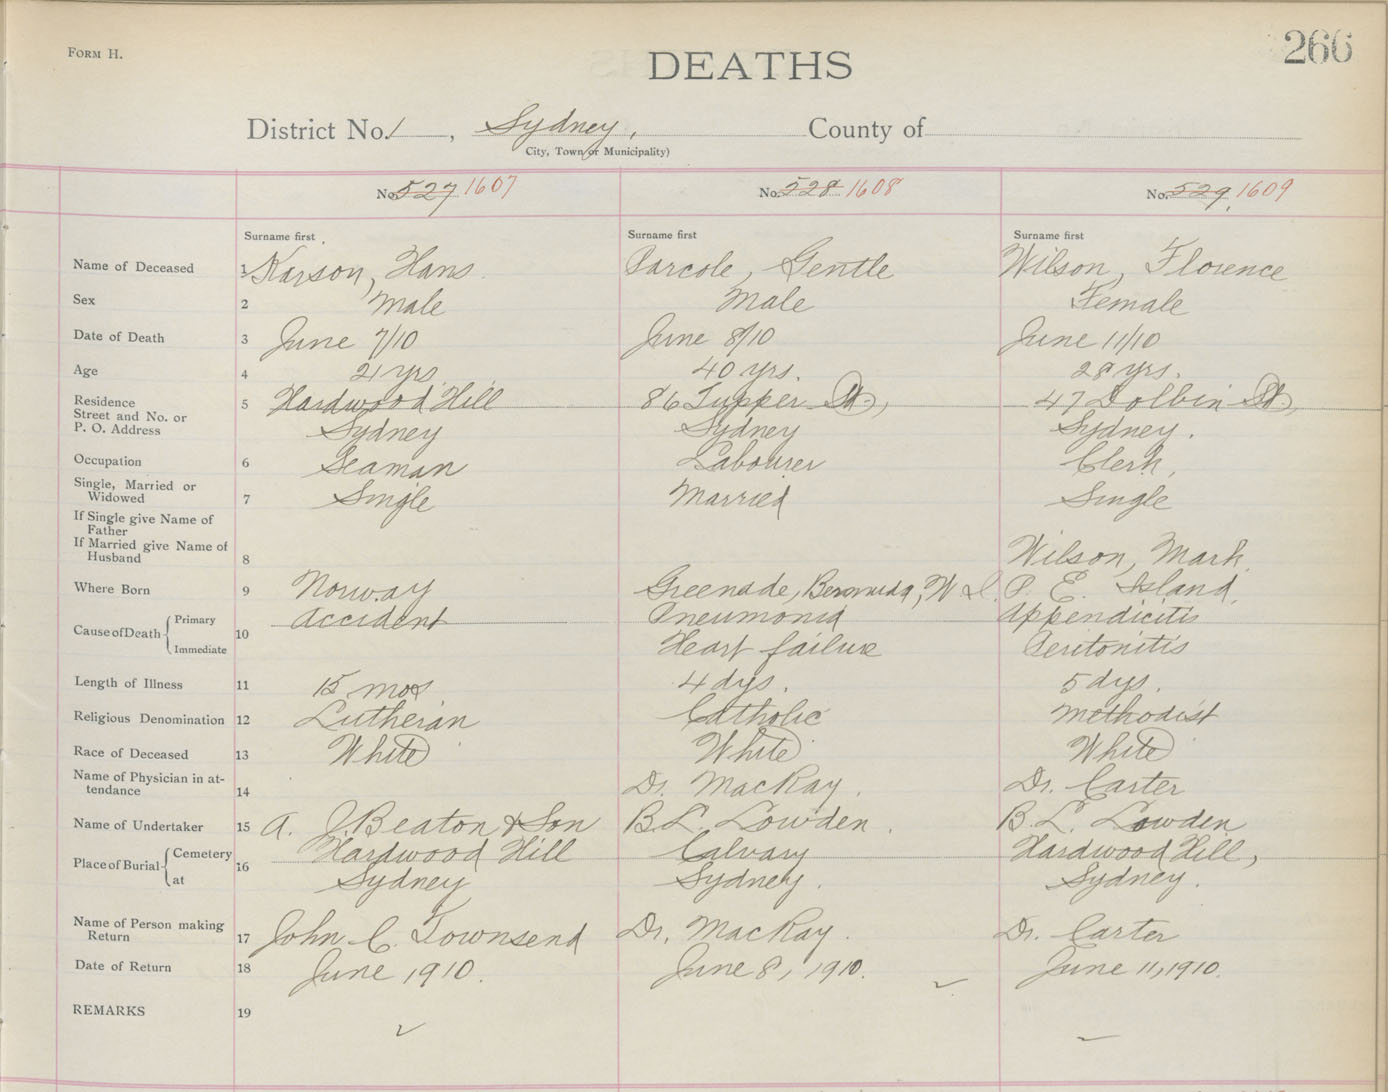 FORM H.
266
DEATHS
District No. 1, Sydney, County of
City, Town or Municipality)
No. 527 1607 No. 528 1608 No. 529. 1609
Surname first Surname first Surname first
Name of Deceased 1 Karson, Hans Parcole, Gentle Wilson, Florence
Sex 2 Male Male Female
Date of Death 3 June 7/10 June 8/10 June 11/10
Age 4 21 yrs. 40 yrs. 28 yrs.
Residence 5 Hardwood Hill 86 Tupper St, 47 Dolbin St,
Street and No. or
P. O. Address Sydney Sydney Sydney.
Occupation 6 Seaman Labourer Clerk,
Single, Married or
Widowed 7 Single Married Single
If Single give Name of
Father
If Married give Name of
Husband 8 Wilson, Mark.
Where Born 9 Norway Greenade, Bermuda, W I. P. E. Island.
Cause of Death Primary Accident Pneumonia Appendicitis
10
Immediate Heart failure Peritonitis
Length of Illness 11 15 mos 4 dys. 5 dys.
Religious Denomination 12 Lutheran Catholic Methodist
Race of Deceased 13 White White White
Name of Physician in at-
tendance 14 Dr. MacKay. Dr. Carter
Name of Undertaker 15 A. J. Beaton & Son B. L. Lowden. B. L. Lowden
Place of Burial Cemetery Hardwood Hill Calvary Hardwood Hill,
16
at Sydney Sydney. Sydney.
Name of Person making
Return 17 John C. Townsend Dr. MacKay. Dr. Carter
Date of Return 18 June 1910. June 8, 1910. June 11, 1910.
REMARKS 19